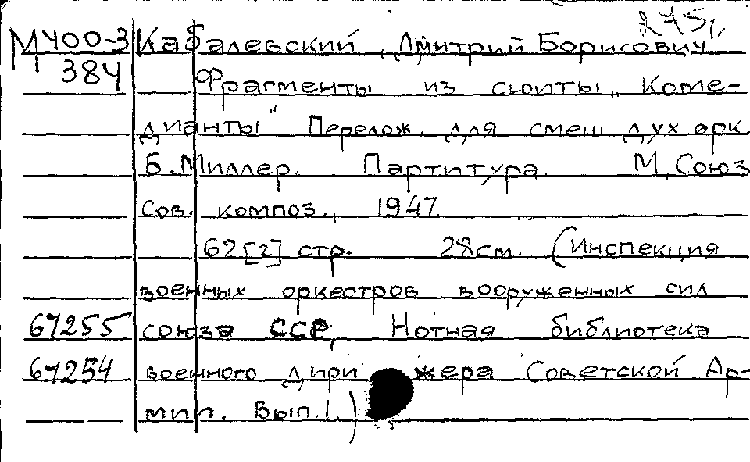 275
М400-3 Кабалевский, Дмитрий Борисович
384 Фрагменты из сюиты „Коме-
дианты" Перелож. для смеш дух орк
Б. Миллер. Партитура. М, Союз
Сов. композ., 1947.
62 [2] стр. 28 см. (Инспекция
военных оркестров вооруженных сил
67255 союза ССР, Нотная библиотека
67254 военного дирижера Советской Ар-
мии. Вып. 1.)